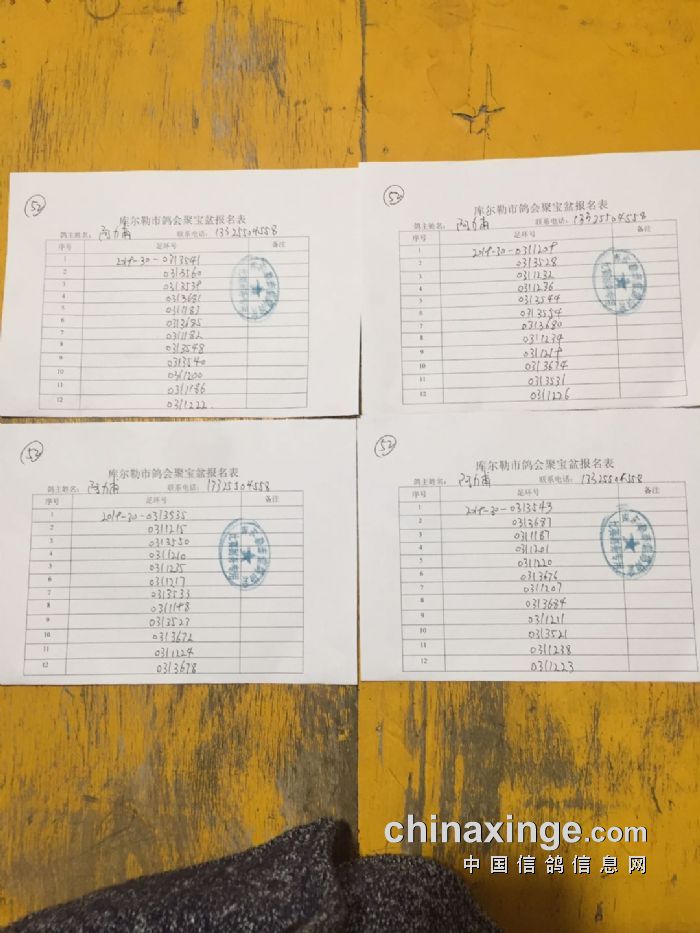 52
库尔勒市鸽会聚宝盆报名表
鸽主姓名: 阿力甫 联系电话: 13325504558
序号 足环号 备注
1 2019-30-0313541
2 0313560
3 0313539
4 0313681
5 0311183
6 0313685
7 0311182
8 0313548
9 0313540
10 0311200
11 0311186
12 0311222
52
库尔勒市鸽会聚宝盆报名表
鸽主姓名: 阿力甫 联系电话: 13325504558
序号 足环号 备注
1 2019-30-0311209
2 0313528
3 0311232
4 0311236
5 0313544
6 0313554
7 0313680
8 0311234
9 0311219
10 0313674
11 0313531
12 0311226
52
库尔勒市鸽会聚宝盆报名表
鸽主姓名: 阿力甫 联系电话: 13325504558
序号 足环号 备注
1 2019-30-0313535
2 0311215
3 0313550
4 0311210
5 0311225
6 0311217
7 0313533
8 0311198
9 0313527
10 0313672
11 0311224
12 0313678
52
库尔勒市鸽会聚宝盆报名表
鸽主姓名: 阿力甫 联系电话: 13325504558
序号 足环号 备注
1 2019-30-0313543
2 0313687
3 0311187
4 0311201
5 0311220
6 0313676
7 0311207
8 0313684
9 0311211
10 0313521
11 0311238
12 0311223
chinaxinge.com
中国信鸽信息网